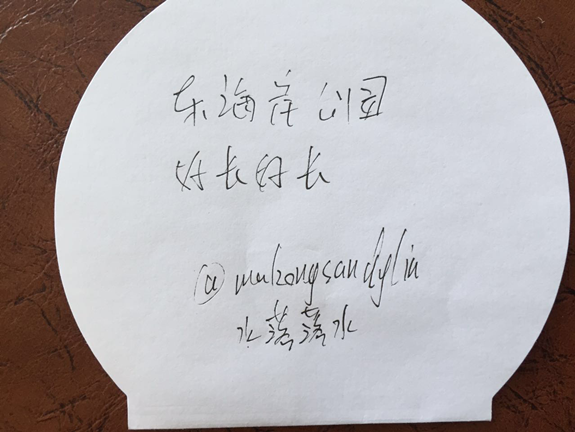 东海岸公园
好长好长
@mukongsandylin
水落落水